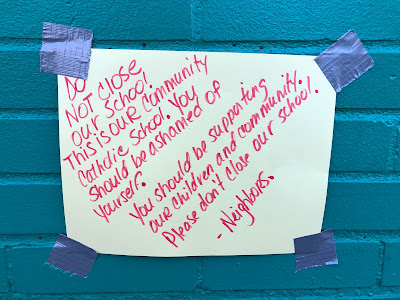 DO
NOT CLOSE
our School
This is our Community
Catholic School. You
should be ashamed of
yourself.
You should be supporting
our children and community.
Please don't close our school.
- Neighbors.